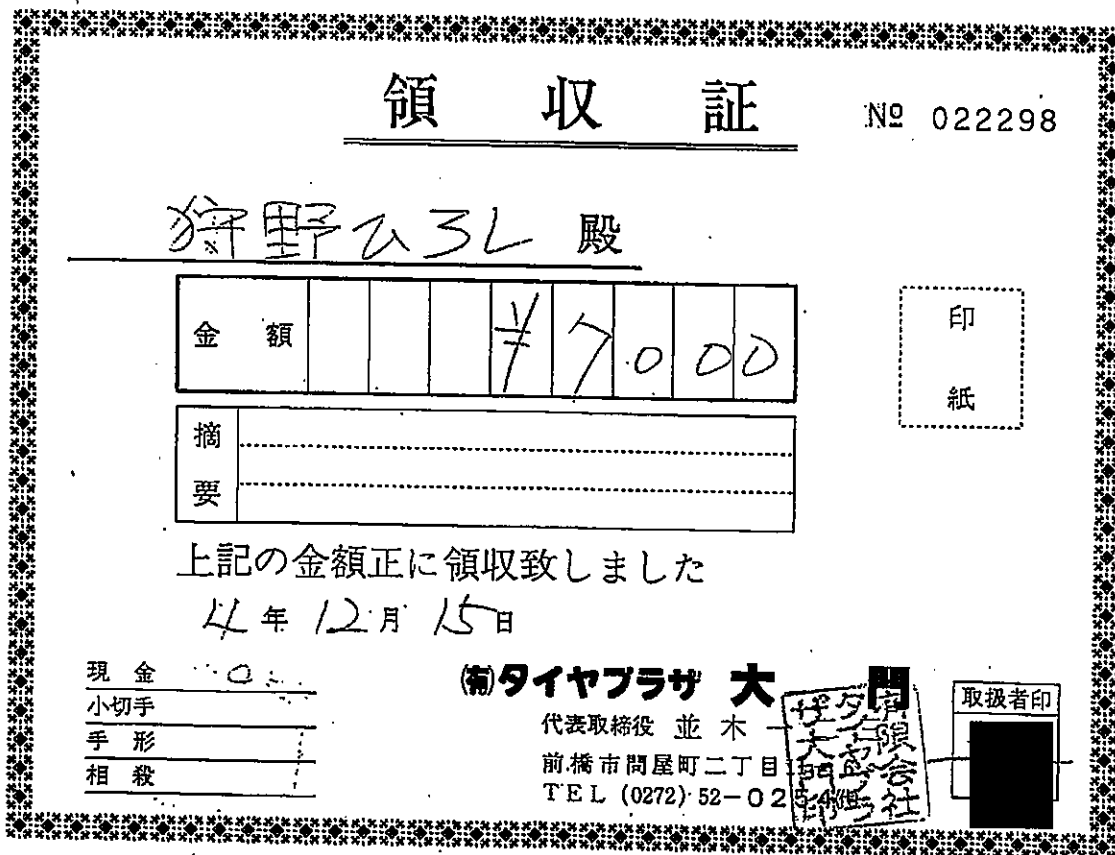 領収証
№ 022298
狩野ひろし 殿
金額 ¥7,000
印紙
摘要
上記の金額正に領収致しました
4年12月15日
現金 0
小切手
手形
相殺
㈲タイヤプラザ 大門
代表取締役 並木
前橋市問屋町二丁目
TEL (0272) 52-02
有限会社タイヤプラザ大門
取扱者印